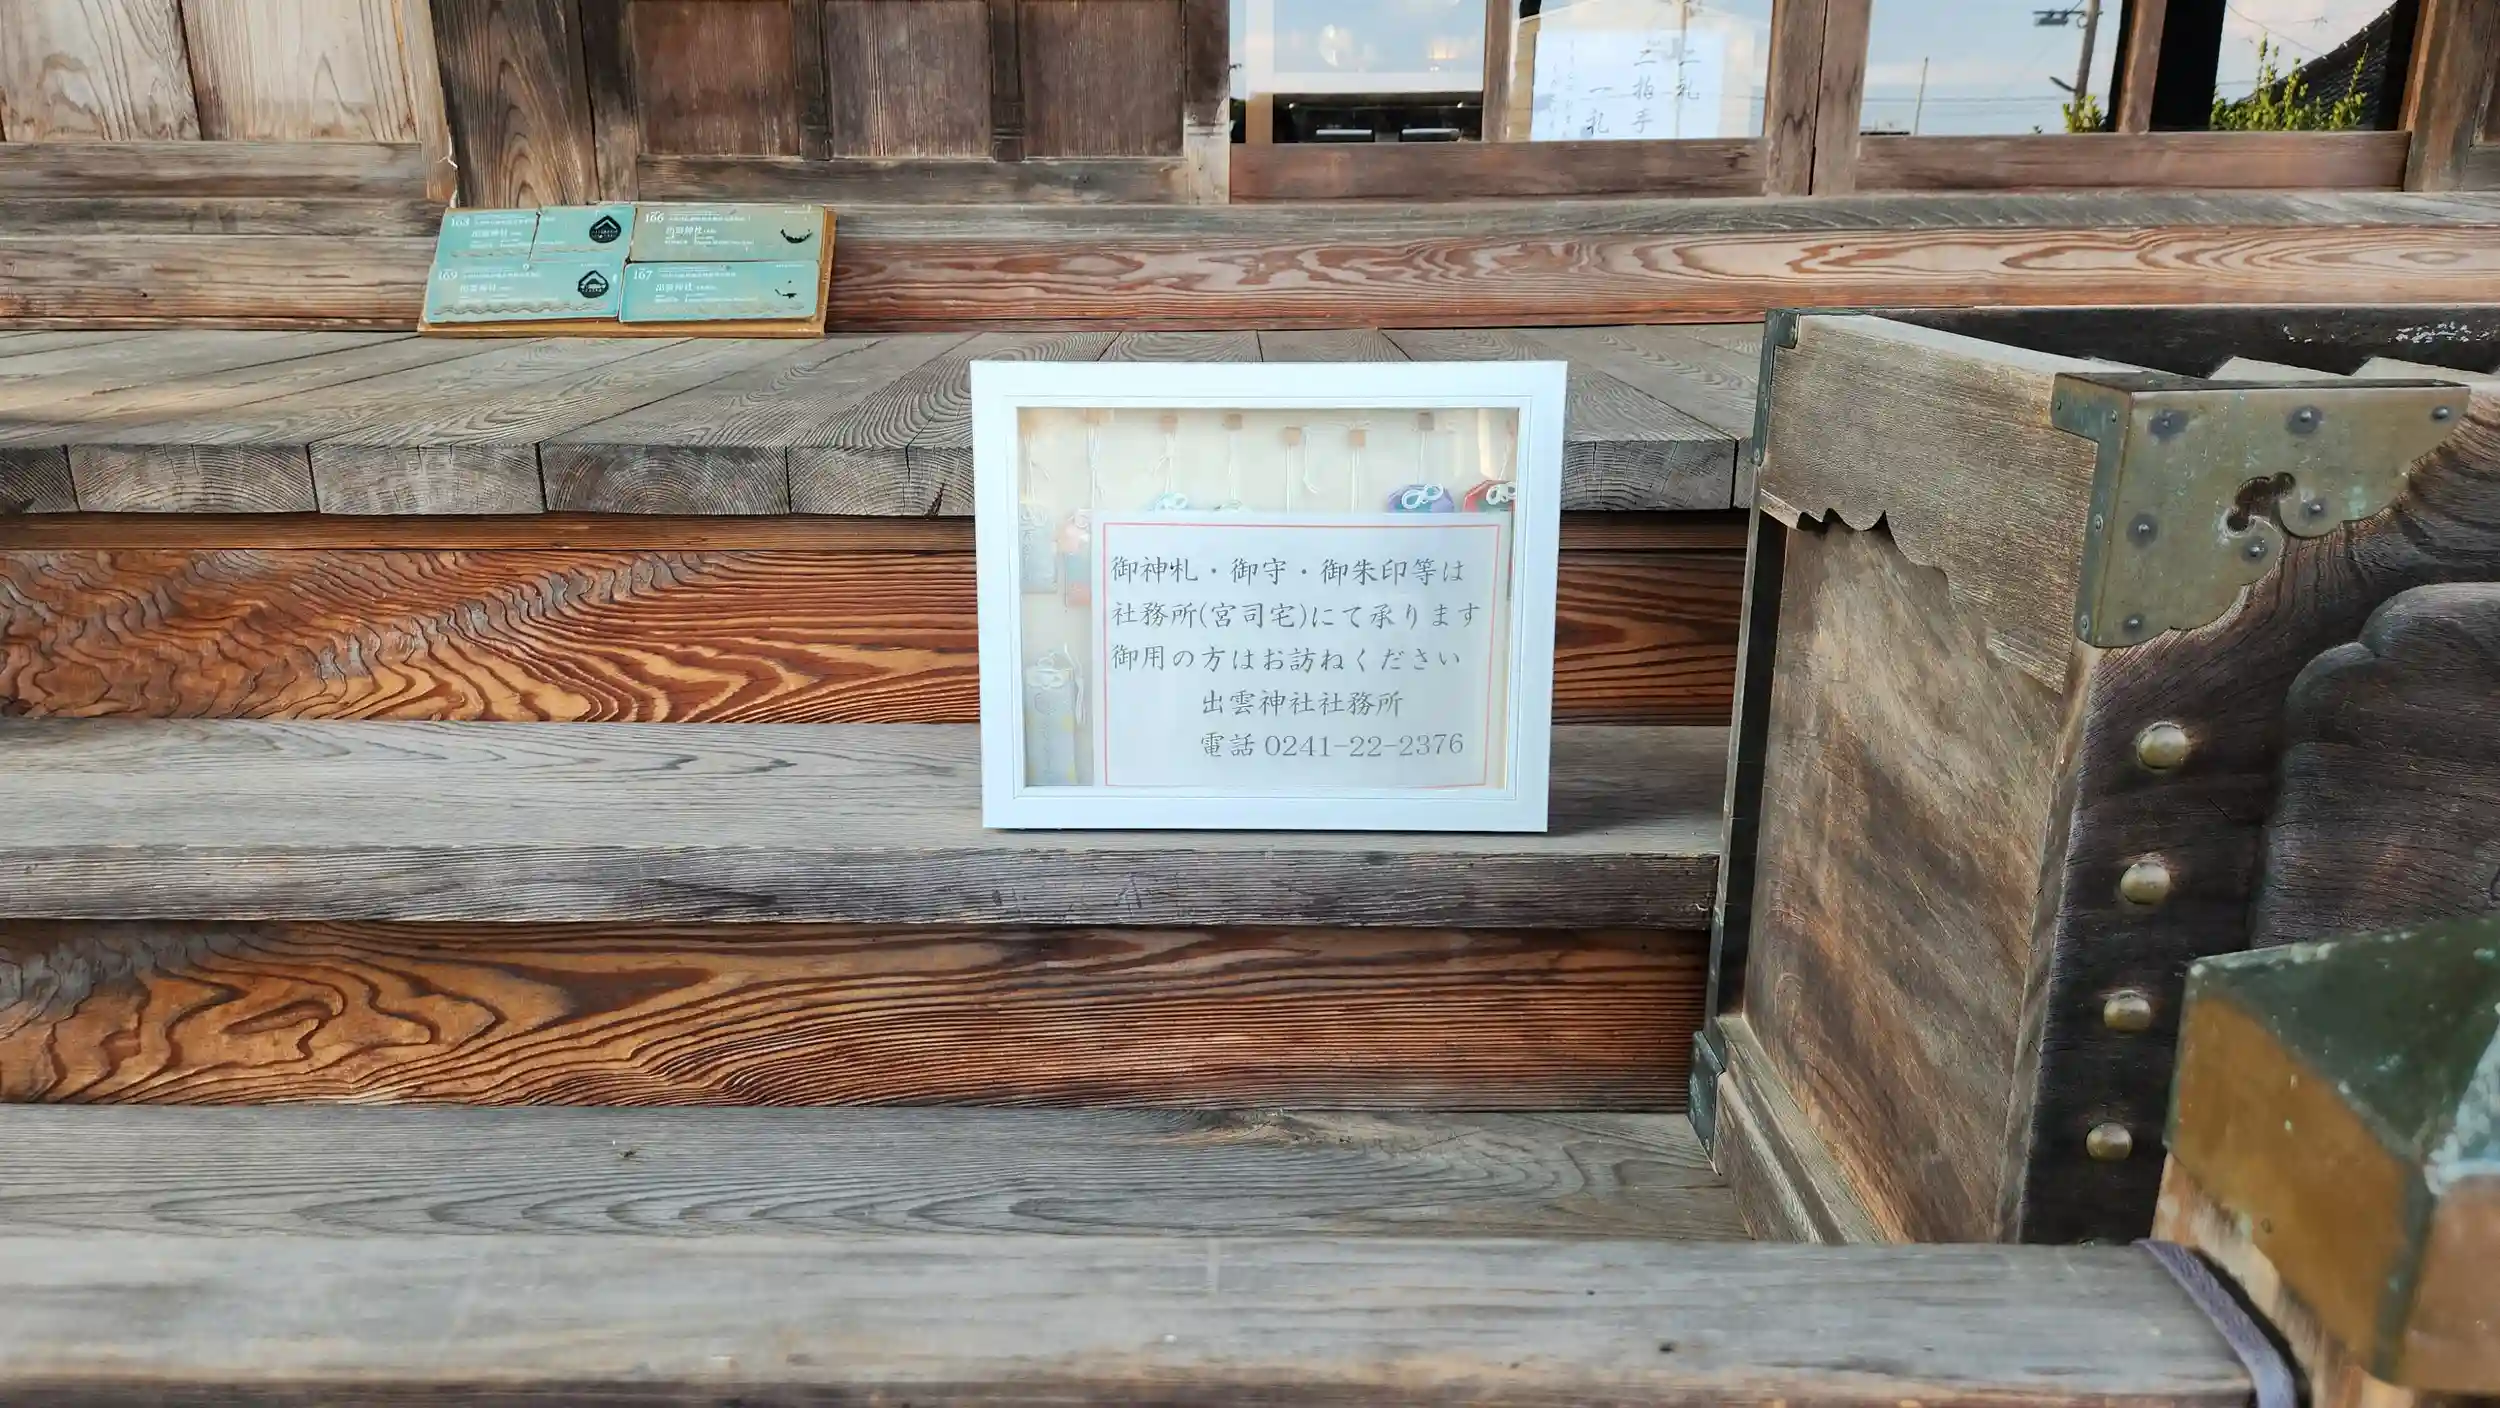 二礼
二拍手
一礼
163
出雲神社
166
出雲神社
169
出雲神社
167
出雲神社
御神札・御守・御朱印等は
社務所(宮司宅)にて承ります
御用の方はお訪ねください
出雲神社社務所
電話 0241-22-2376